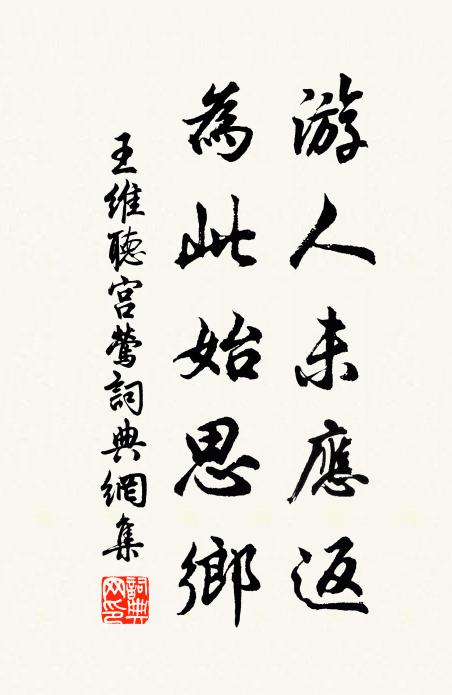 游人未應返
為此始思鄉
王維聽宮鶯詞典網集
詞典網印